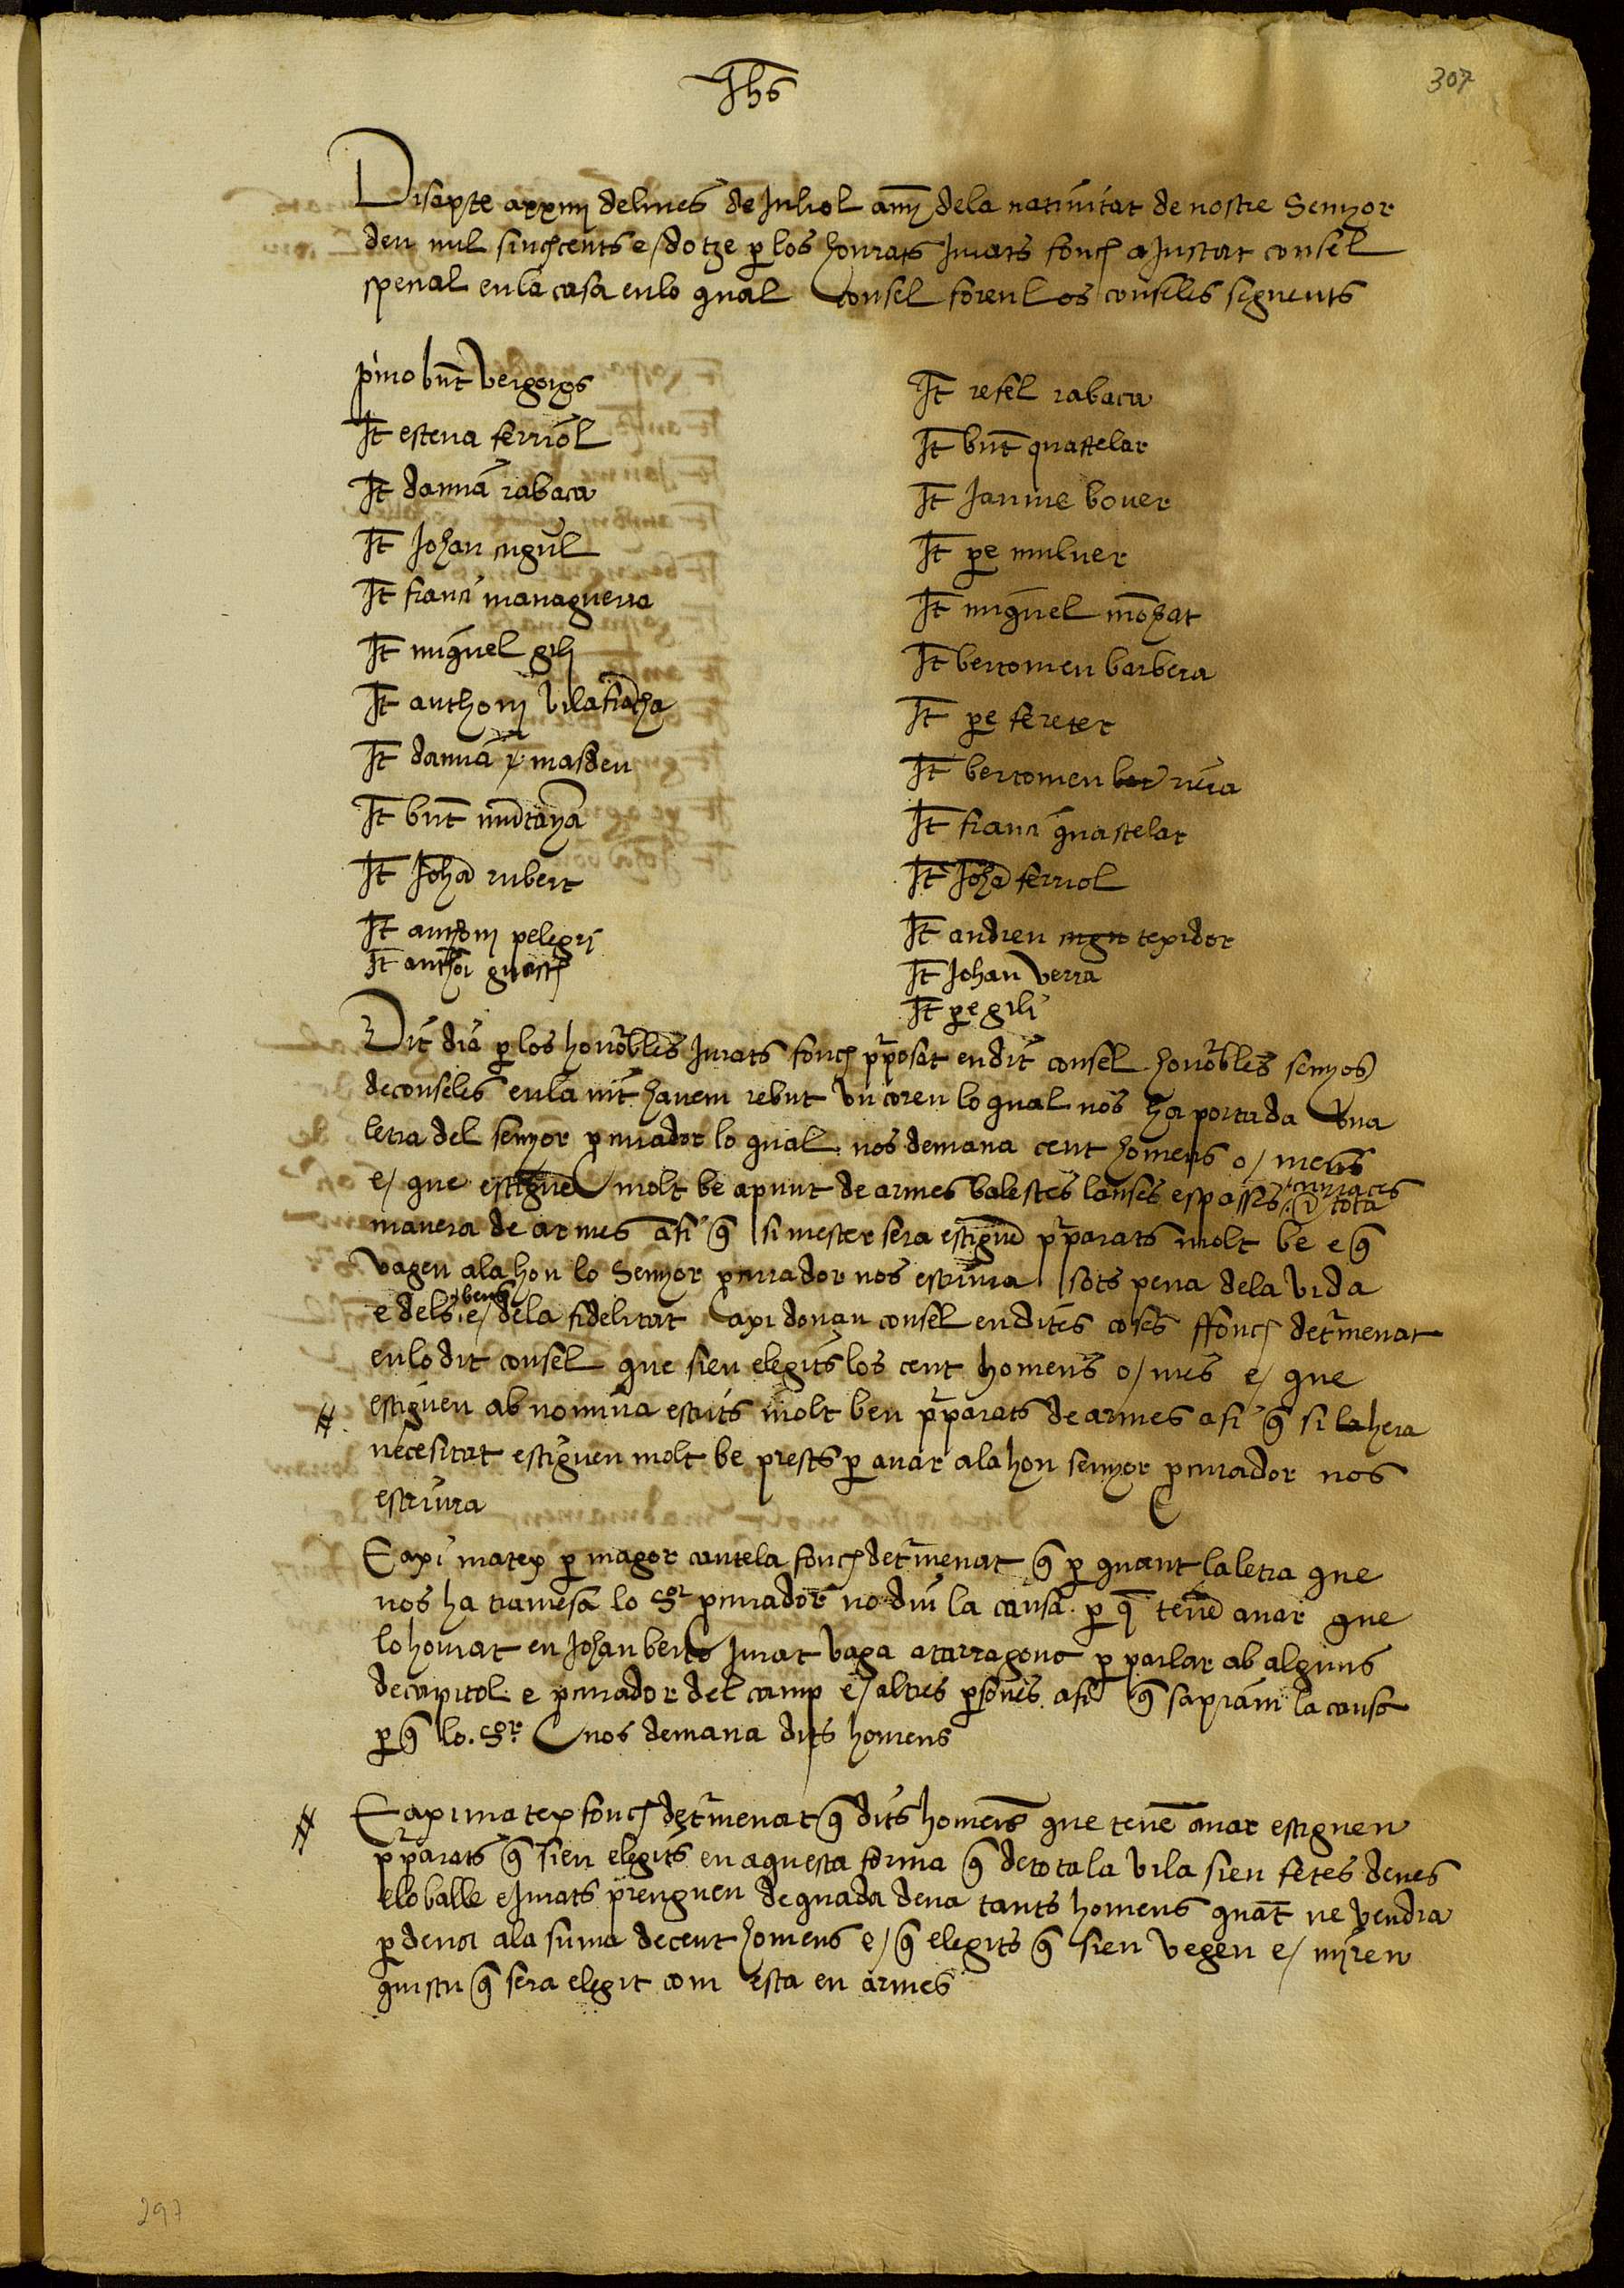 Jhs
307
Disapte a xxiiij del mes de Juliol any dela natiuitat de nostre Senyor
deu mil sinchcents e / dotze p los honrats Jurats fonch aJustat consel
spenal en la casa en lo qual Consel foren los conseles siguents
pimo bnt vergonys
It esteua ferriol
It damia rabaca
It Johan cugul
It franci managuerra
It miguel gili
It anthoni vilafrancha
It damia masdeu
It bnt muntanya
It Joha rubert
It anthoni pelegri
It anthoi guasch
It refel rabaca
It bnt quastelar
It Jaume bouer
It pe muluer
It miguel mozat
It bertomeu barbera
It pe fereter
It bertomeu riera
It franci quastelar
It Joha ferriol
It andreu texidor
It Johan verra
It pe gili
Dit dia p los honorbles Jurats fonch pposat en dit consel honorbles senyos
de conseles en la nit hauem rebut vn coreu lo qual nos ha portada vna
letra del senyor pcurador lo qual nos demana cent homens o / mens
e / que estigue molt be apunt de armes balestes lanses espasses curraces e tota
manera de armes afi q si mester sera estigue pparats molt be e q
vagen ala hon lo Senyor pcurador nos escriura sots pena dela vida
e dels bens e / dela fidelitat axi donau consel en dites coses ffonch detrmenat
en lo dit consel que sien elegits los cent homens o / mes e / que
estiguen ab nomina escrits molt ben pparats de armes afi q si la hera
necesitat estiguen molt be prests p anar ala hon senyor pcurador nos
escriura
E axi matex p magor cautela fonch detrmenat q p quant la letra que
nos ha tramesa lo Sor pcurador no diu la causa p q tene anar que
lo honrat en Johan bert Jurat vaga a tarragona p parlar ab alguns
de capitol e pcurador del camp e / altres psones afi q sapiam la causa
p q lo Sor nos demana dits homens
E axi matex fonch detrmenat q dits homens que tene anar estiguen
pparats q sien elegits en aquesta forma q de tota la vila sien fetes denes
e lo balle e Jurats prenguen de quada dena tants homens quat ne vendra
p dena ala suma de cent homens e / q elegits q sien vegen e / miren
quiscu q sera elegit com esta en armes
297